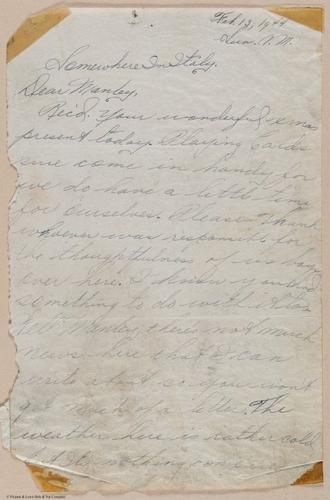 Feb. 13, 1944
Sun. P.M.
Somewhere In Italy.
Dear Manley,
Rec'd. Your wonderful xmas
present today. Playing cards
sure come in handy for
we do have a little time
for ourselves. Please thank
whoever was responsible for
the thoughtfulness of us way
over here. I know you had
something to do with it too.
Manley, there's not much
news here that I can
write about so you won't
get much of a letter. The
weather here is rather cold
but it's nothing